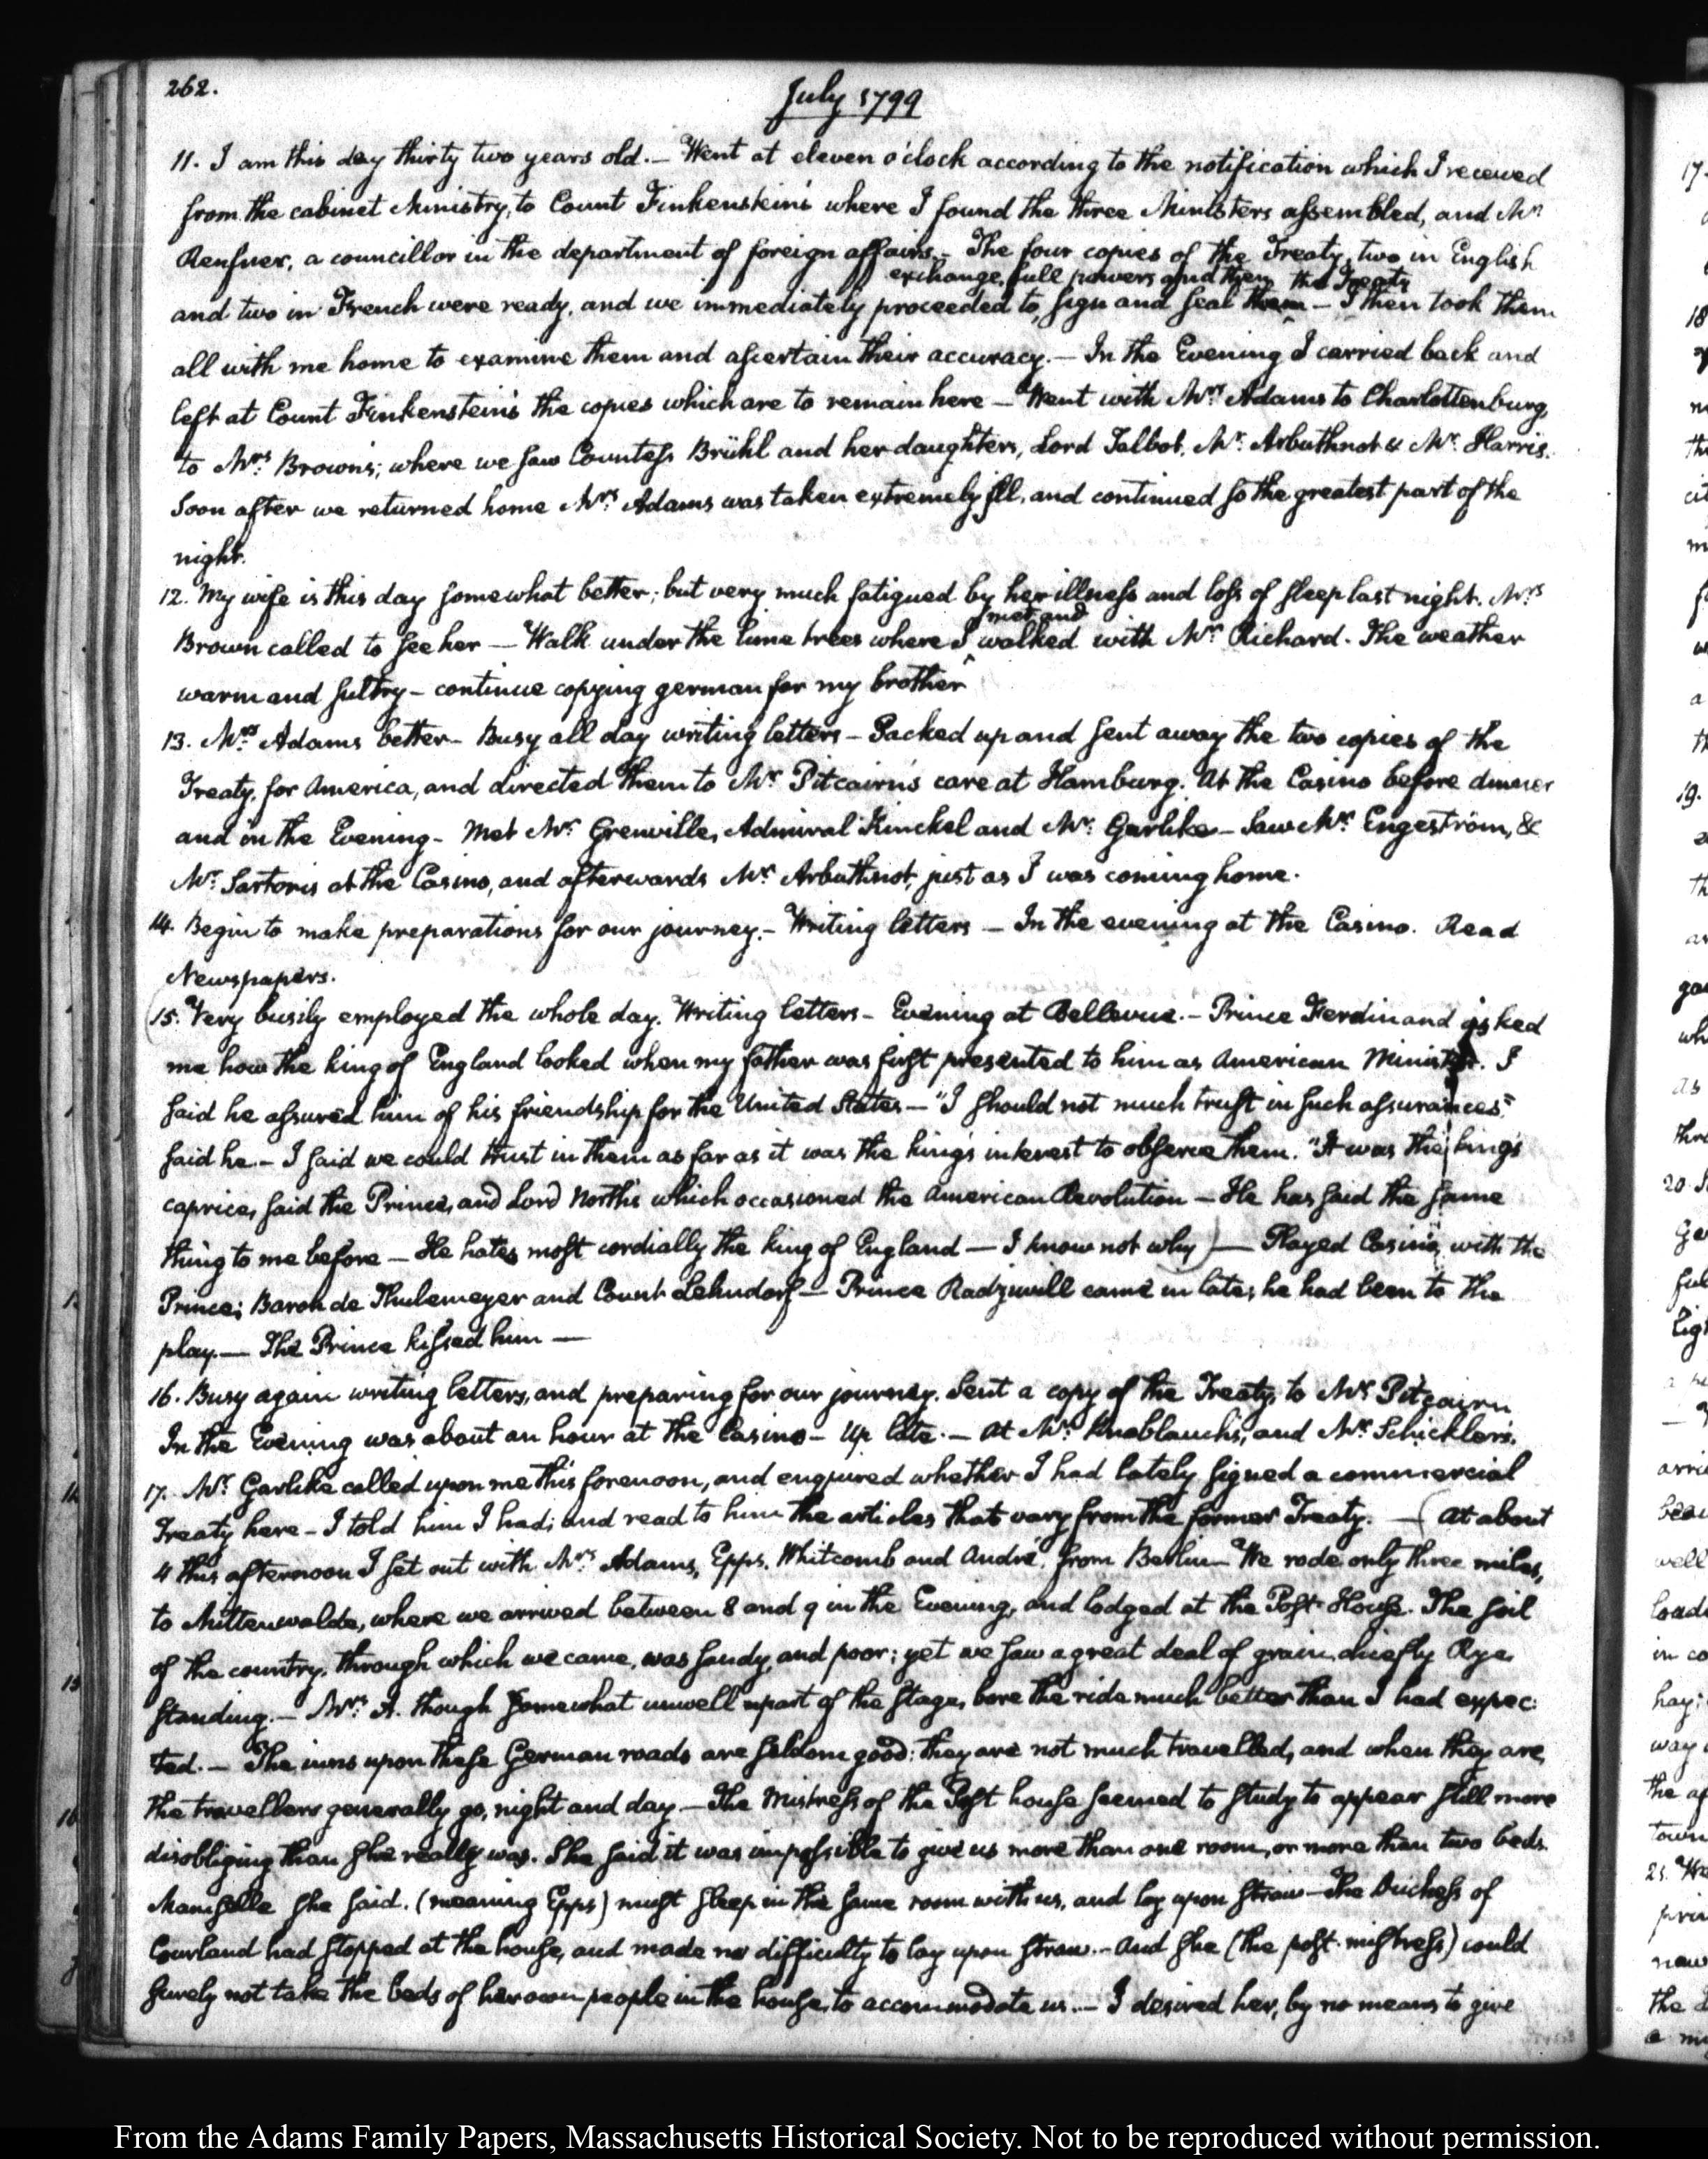 262.
July 1799
11. I am this day thirty two years old.— Went at eleven o'clock according to the notification which I received
from the cabinet Ministry, to Count Finkenstein's where I found the three Ministers assembled, and Mr.
Renfner, a councillor in the department of foreign affairs.— The four copies of the Treaty, two in English
exchange full powers and then the Treaty
and two in French were ready, and we immediately proceeded to sign and seal them — I then took them
all with me home to examine them and ascertain their accuracy.— In the Evening I carried back and
left at Count Finkenstein's the copies which are to remain here — Went with Mrs. Adams to Charlottenburg,
to Mrs. Brown's; where we saw Countess Brühl and her daughters, Lord Talbot, Mr. Arbuthnot & Mr. Harris.
Soon after we returned home Mrs. Adams was taken extremely ill, and continued so the greatest part of the
night.
12. My wife is this day somewhat better; but very much fatigued by her illness and loss of sleep last night. Mrs.
met and
Brown called to see her — Walk under the lime trees where I walked with Mr. Richard. The weather
warm and sultry — continue copying german for my brother
13. Mrs. Adams better — Busy all day writing letters — Packed up and sent away the two copies of the
Treaty, for America, and directed them to Mr. Pitcairn's care at Hamburg. At the Casino before dinner
and in the Evening — Met Mr. Grenville, Admiral Kinckel and Mr. Garlike — Saw Mr. Engeström, &
Mr. Sartoris at the Casino, and afterwards Mr. Arbuthnot, just as I was coming home.
14. Begin to make preparations for our journey.— Writing letters — In the evening at the Casino. Read
Newspapers.
15. Very busily employed the whole day. Writing letters — Evening at Bellevue.— Prince Ferdinand asked
me how the king of England looked when my father was first presented to him as American Minister. I
said he assured him of his friendship for the United States — "I should not much trust in such assurances"
said he — I said we could trust in them as far as it was the king's interest to observe them. "It was the king's
caprice, said the Prince, and Lord North's which occasioned the American Revolution — He has said the same
thing to me before — He hates most cordially the king of England — I know not why) — Played Casino, with the
Prince; Baron de Thulemeyer and Count Lehndorf — Prince Radziwill came in late; he had been to the
play.— The Prince kissed him —
16. Busy again writing letters, and preparing for our journey. Sent a copy of the Treaty, to Mr. Pitcairn
In the Evening was about an hour at the Casino — Up late.— At Mr. Knoblauch's, and Mr. Schickler's.
17. Mr. Garlike called upon me this forenoon, and enquired whether I had lately signed a commercial
Treaty here — I told him I had; and read to him the articles that vary from the former Treaty. — (At about
4 this afternoon I set out with Mrs. Adams, Epps, Whitcomb and André, from Berlin — We rode only three miles,
to Mittenwalde, where we arrived between 8 and 9 in the Evening, and lodged at the Post-House. The soil
of the country, through which we came, was sandy, and poor; yet we saw a great deal of grain, chiefly Rye
standing.— Mrs. A. though somewhat unwell part of the stage, bore the ride much better than I had expec:
ted.— The inns upon these German roads are seldom good: they are not much travelled, and when they are,
the travellers generally go, night and day — The Mistress of the Post house seemed to study to appear still more
disobliging than she really was. She said it was impossible to give us more than one room, or more than two beds.
Mamselle she said, (meaning Epps) must sleep in the same room with us, and lay upon straw — The Duchess of
Courland had stopped at the house, and made no difficulty to lay upon straw.— And she (the post-mistress) could
surely not take the beds of her own people in the house, to accommodate us.— I desired her, by no means to give
From the Adams Family Papers, Massachusetts Historical Society. Not to be reproduced without permission.